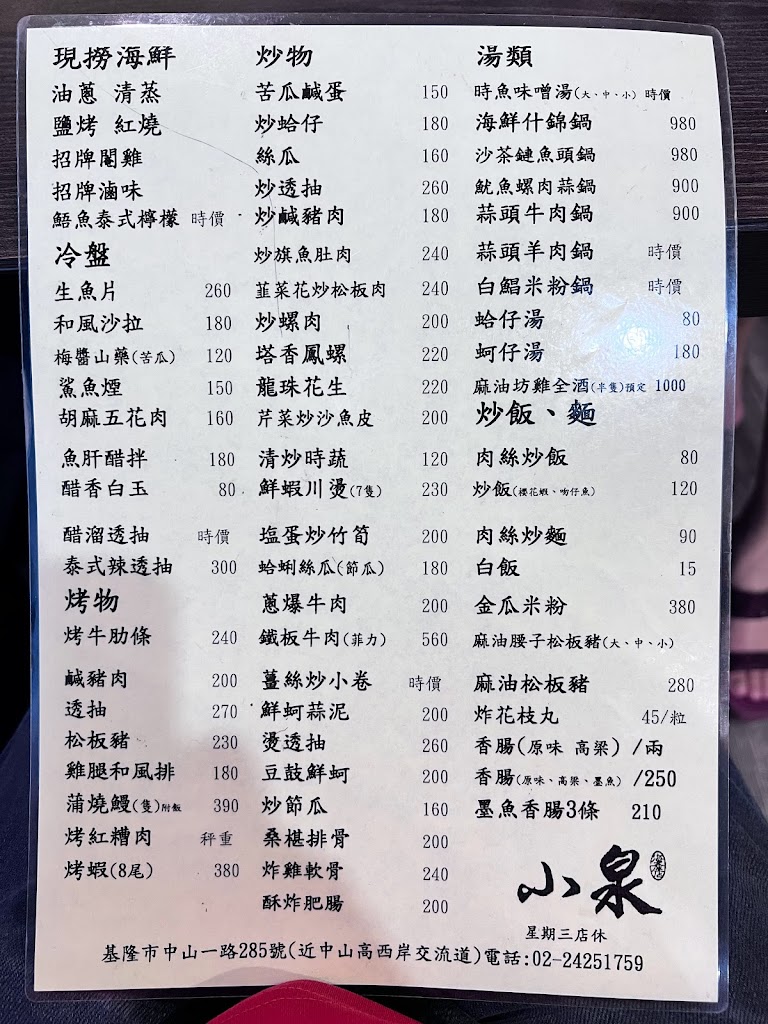 現撈海鮮
油蔥 清蒸
鹽烤 紅燒
招牌閹雞
招牌滷味
鯃魚泰式檸檬 時價
冷盤
生魚片 260
和風沙拉 180
梅醬山藥(苦瓜) 120
鯊魚煙 150
胡麻五花肉 160
魚肝醋拌 180
醋香白玉 80
醋溜透抽 時價
泰式辣透抽 300
烤物
烤牛肋條 240
鹹豬肉 200
透抽 270
松板豬 230
雞腿和風排 180
蒲燒鰻(隻)附飯 390
烤紅糟肉 秤重
烤蝦(8尾) 380
炒物
苦瓜鹹蛋 150
炒蛤仔 180
絲瓜 160
炒透抽 260
炒鹹豬肉 180
炒旗魚肚肉 240
韮菜花炒松板肉 240
炒螺肉 200
塔香鳳螺 220
龍珠花生 220
芹菜炒沙魚皮 200
清炒時蔬 120
鮮蝦川燙(7隻) 230
塩蛋炒竹筍 200
蛤蜊絲瓜(節瓜) 180
蔥爆牛肉 200
鐵板牛肉(菲力) 560
薑絲炒小卷 時價
鮮蚵蒜泥 200
燙透抽 260
豆鼓鮮蚵 200
炒節瓜 160
桑椹排骨 200
炸雞軟骨 240
酥炸肥腸 200
湯類
時魚味噌湯(大、中、小) 時價
海鮮什錦鍋 980
沙茶鏈魚頭鍋 980
魷魚螺肉蒜鍋 900
蒜頭牛肉鍋 900
蒜頭羊肉鍋 時價
白鯧米粉鍋 時價
蛤仔湯 80
蚵仔湯 180
麻油坊雞全酒(半隻)預定 1000
炒飯、麵
肉絲炒飯 80
炒飯(櫻花蝦、吻仔魚) 120
肉絲炒麵 90
白飯 15
金瓜米粉 380
麻油腰子松板豬(大、中、小)
麻油松板豬 280
炸花枝丸 45/粒
香腸(原味 高梁) /兩
香腸(原味、高粱、墨魚) /250
墨魚香腸3條 210
小泉
星期三店休
基隆市中山一路285號(近中山高西岸交流道)電話:02-24251759